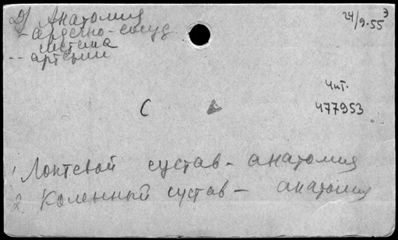 2) Анатомия
24/9-55 Э
- сердечно-сосуд
система
-- артерии
Чит.
477953
С
1 Локтевой сустав - анатомия
2. Коленный сустав - анатомия